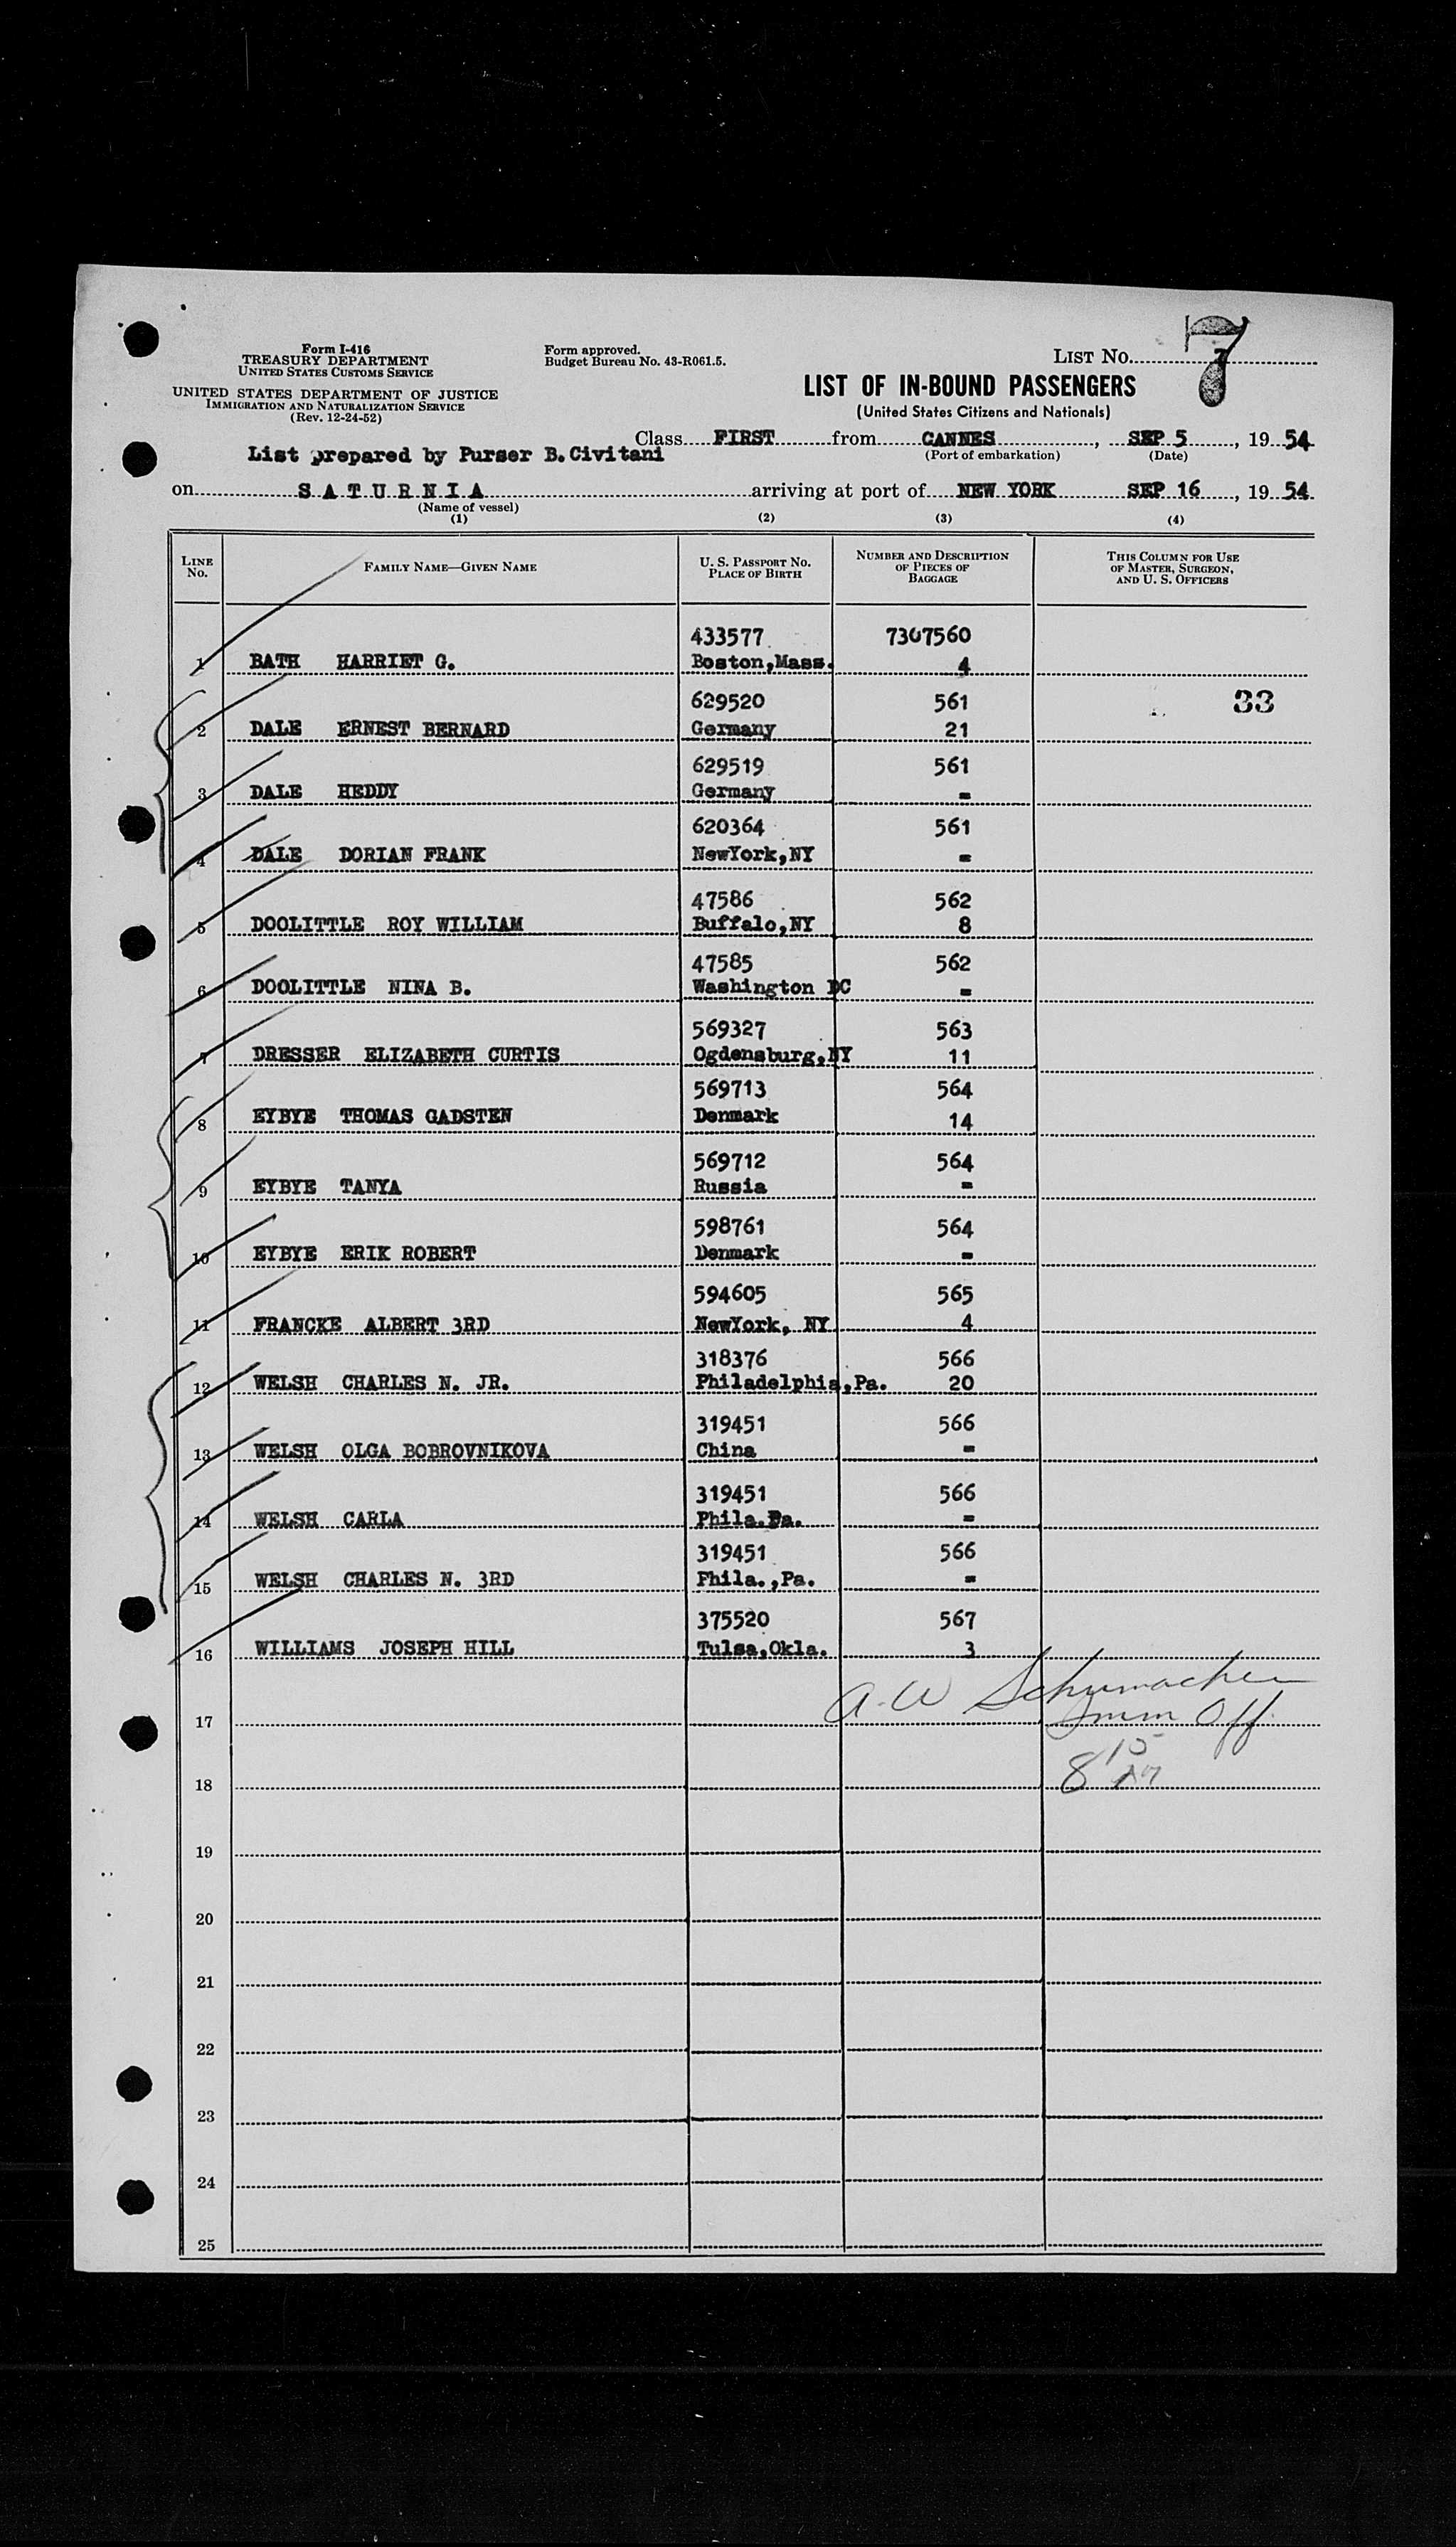 Form I-416
TREASURY DEPARTMENT
UNITED STATES CUSTOMS SERVICE
UNITED STATES DEPARTMENT OF JUSTICE
IMMIGRATION AND NATURALIZATION SERVICE
(Rev. 12-24-52)
Form approved.
Budget Bureau No. 43-R061.5.
LIST NO. 7
7
LIST OF IN-BOUND PASSENGERS
(United States Citizens and Nationals)
Class FIRST from CANNES, SEP 5, 19 54
(Port of embarkation) (Date)
List prepared by Purser B.Civitani
on S A T U R N I A arriving at port of NEW YORK SEP 16, 19 54
(Name of vessel)
(1) (2) (3) (4)
LINE NO. FAMILY NAME—GIVEN NAME U. S. PASSPORT NO. PLACE OF BIRTH NUMBER AND DESCRIPTION OF PIECES OF BAGGAGE THIS COLUMN FOR USE OF MASTER, SURGEON, AND U. S. OFFICERS
433577 7307560
1 BATH HARRIET G. Boston,Mass. 4
629520 561 33
2 DALE ERNEST BERNARD Germany 21
629519 561
3 DALE HEDDY Germany -
620364 561
4 DALE DORIAN FRANK NewYork,NY -
47586 562
5 DOOLITTLE ROY WILLIAM Buffalo,NY 8
47585 562
6 DOOLITTLE NINA B. Washington DC -
569327 563
7 DRESSER ELIZABETH CURTIS Ogdensburg,NY 11
569713 564
8 EYBYE THOMAS GADSTEN Denmark 14
569712 564
9 EYBYE TANYA Russia -
598761 564
10 EYBYE ERIK ROBERT Denmark -
594605 565
11 FRANCKE ALBERT 3RD NewYork, NY 4
318376 566
12 WELSH CHARLES N. JR. Philadelphia,Pa. 20
319451 566
13 WELSH OLGA BOBROVNIKOVA China -
319451 566
14 WELSH CARLA Phila.Pa. -
319451 566
15 WELSH CHARLES N. 3RD Phila.,Pa. -
375520 567
16 WILLIAMS JOSEPH HILL Tulsa,Okla. 3
A. W Schumacher
17 Imm Off.
18 8 15 AM
19
20
21
22
23
24
25